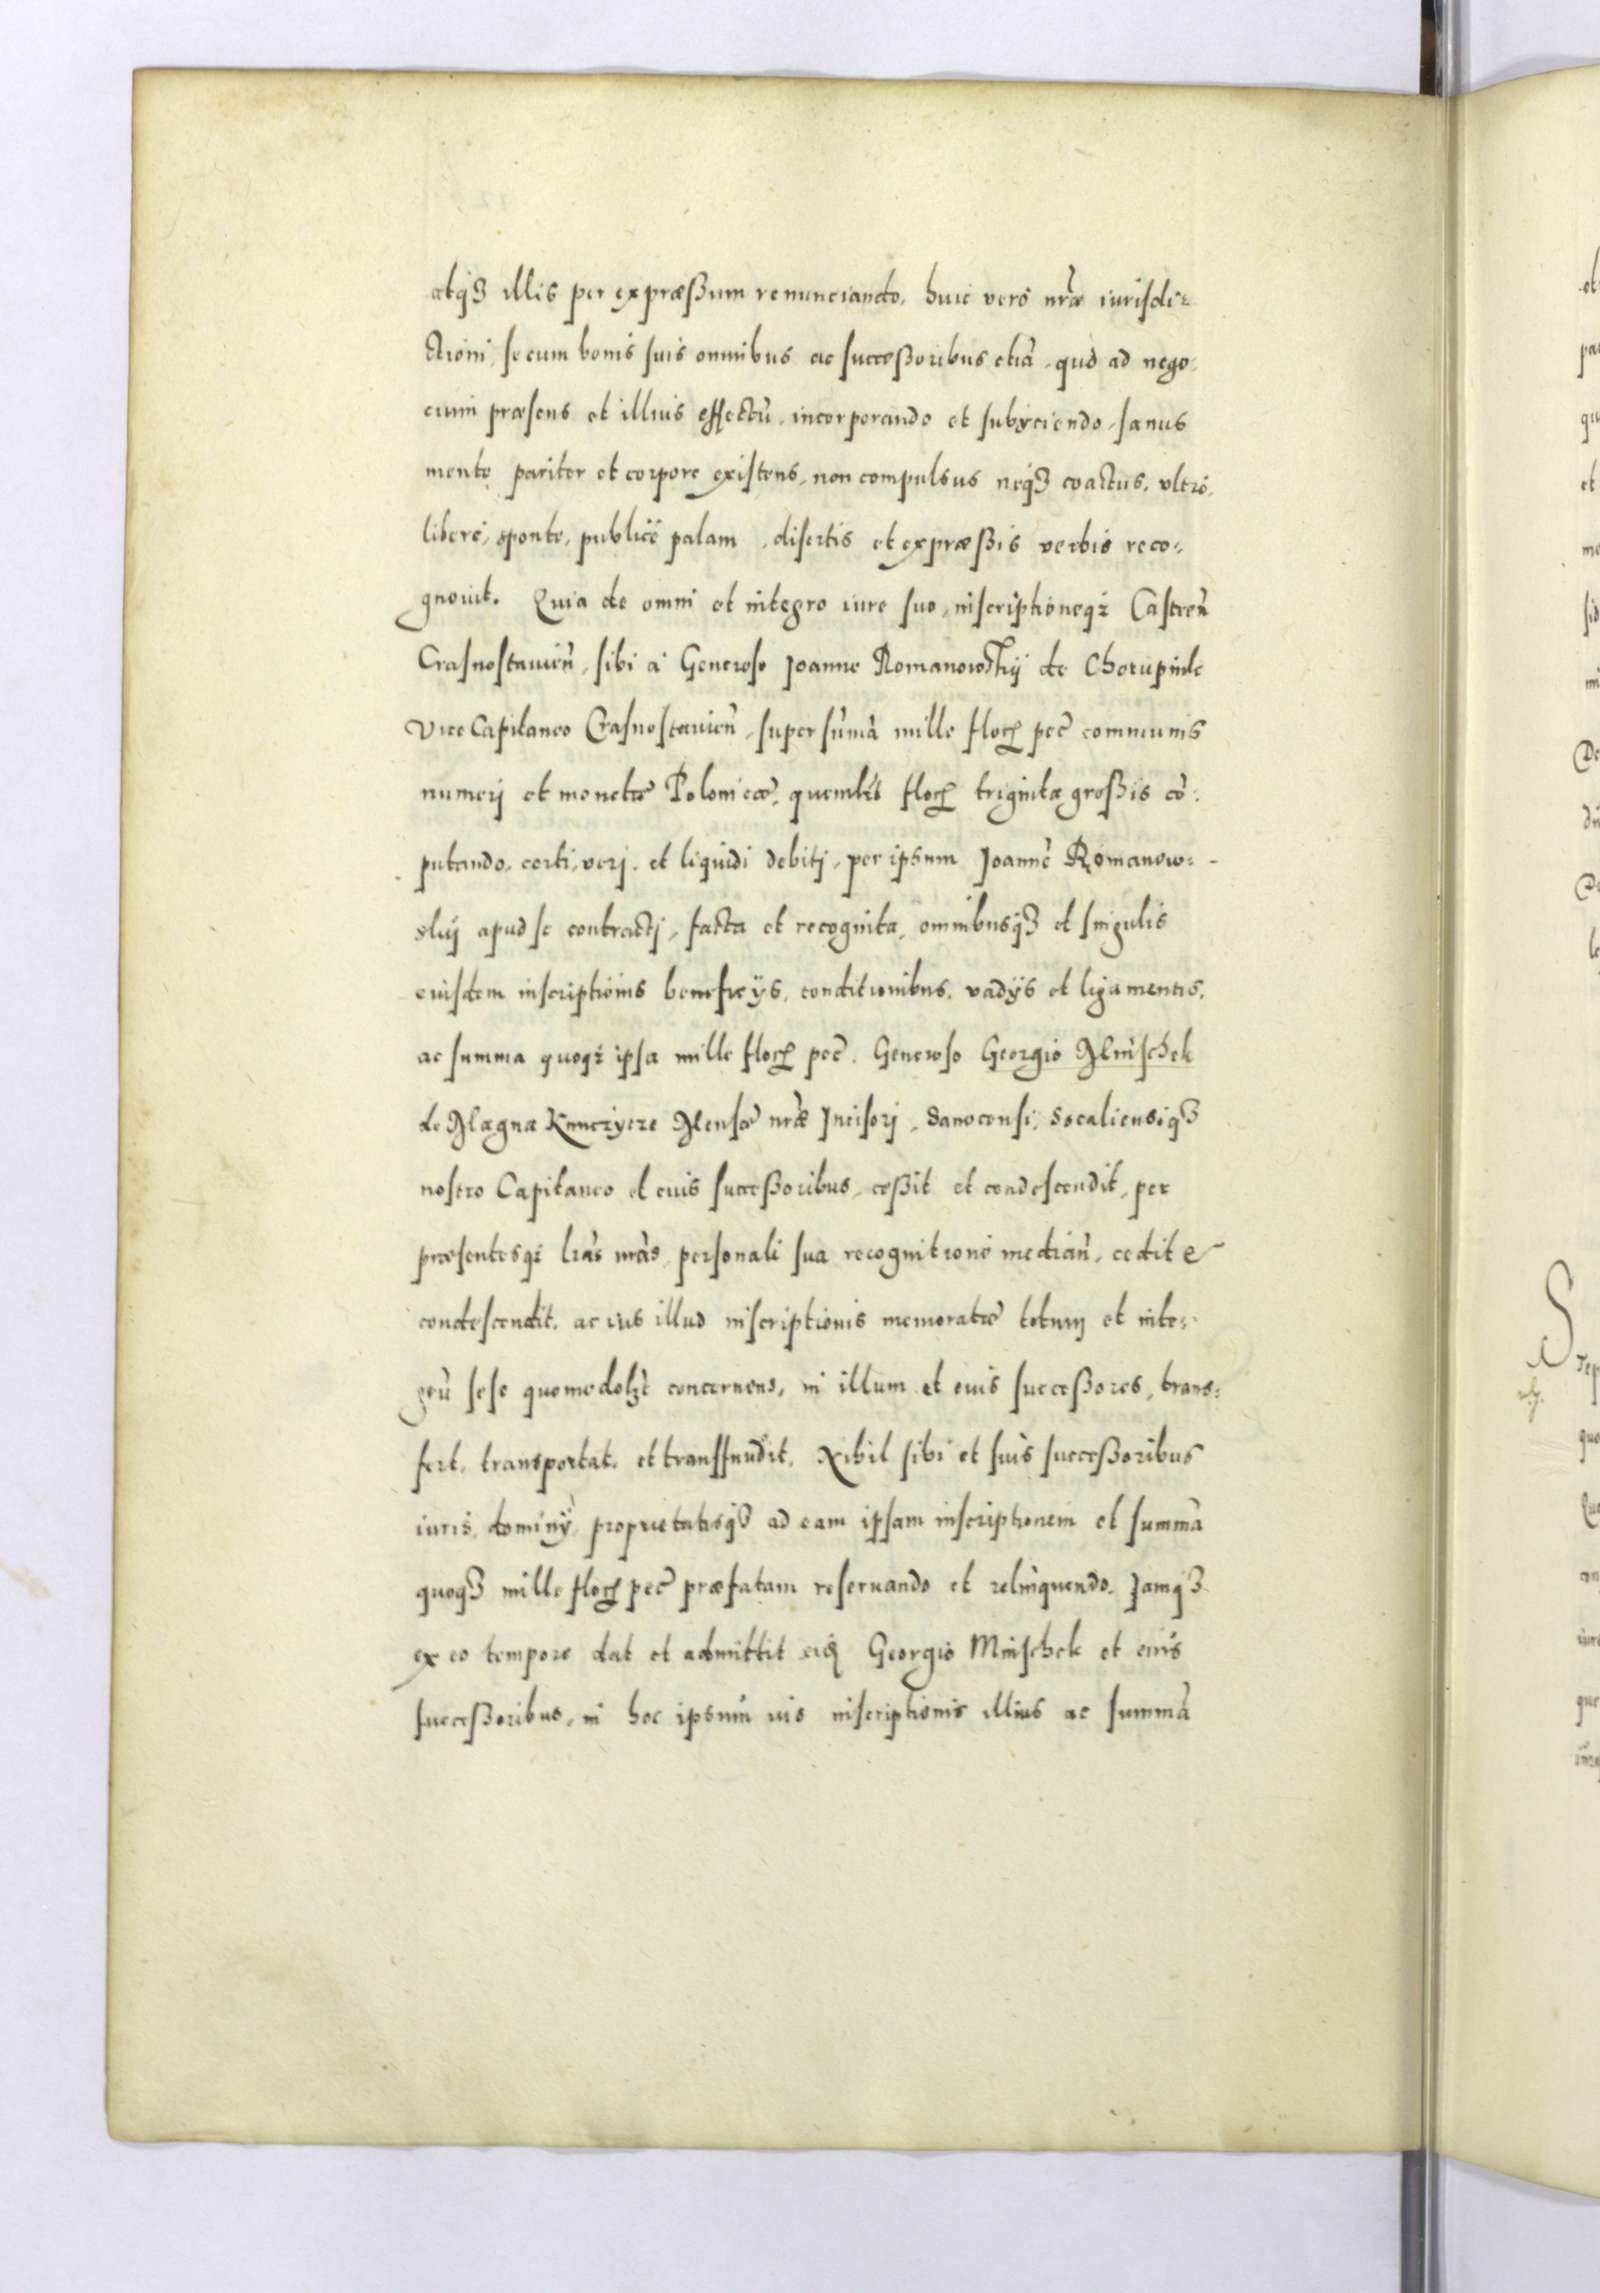 atq₃ illis per expræßum renunciando, huic verò nr̃æ iurisdi=
ctioni, se cum bonis suis omnibus ac succeßoribus etiã, quò ad nego=
cium præsens et illius effectũ, incorporando et subijciendo, sanus
mente pariter et corpore existens, non compulsus neq₃ coactus, vltrò,
liberè, sponte, publicè palam, disertis et expræßis verbis reco=
gnouit. Quia de omni et integro iure suo, inscriptioneq₃ Castreñ
Crasnostauieñ, sibi à Generoso Joanne Romanowskij de Chorupnik
Vice Capitaneo Crasnostauieñ, super sũmã mille floꝶ pec̃ communis
numerj et monetæ Polonicæ, quemlib̃ floꝶ trigintæ großis cõ=
putando, certi, verj, et liquidi debitj, per ipsum Joannẽ Romanow=
skij apud se contractj, facta et recognita, omnibusq₃ et singulis
eiusdem inscriptionis beneficijs, conditionibus, vadijs et ligamentis,
ac summa quoq₃ ipsa mille floꝶ pec̃. Generoso Georgio Mnischek
de Magna Kunczycze Mensæ nr̃æ Incisorj, Sanocensi, Socaliensiq₃
nostro Capitaneo et eius succeßoribus, ceßit et condescendit, per
præsentesq₃ lr̃as nr̃as, personali sua recognitione mediañ, cedit &
condescendit, ac ius illud inscriptionis memoratæ totum et inte=
grũ sese quomodolz̃t concernens, in illum et eius succeßores, trans=
fert, transportat, et transfundit, Nihil sibi et suis succeßoribus
iuris, dominij, proprietatisq₃ ad eam ipsam inscriptionem et summã
quoq₃ mille floꝶ pec̃ præfatam reseruando et relinquendo. Jamq₃
ex eo tempore dat et admittit eiđ Georgio Mnischek et eius
succeßoribus, in hoc ipsum ius inscriptionis illius ac summã